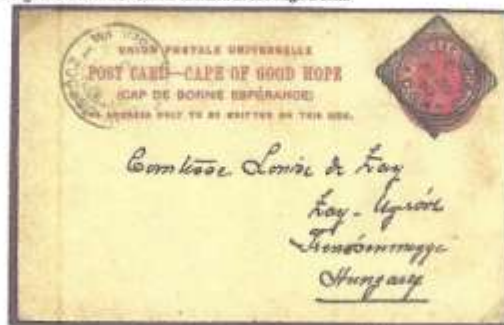 UNION POSTALE UNIVERSELLE
POST CARD—CAPE OF GOOD HOPE
(CAP DE BONNE ESPÉRANCE)
THE ADDRESS ONLY TO BE WRITTEN ON THIS SIDE.
Comtesse Louise de Zay
Zay-Ugrócz
Trencsénmegye
Hungary